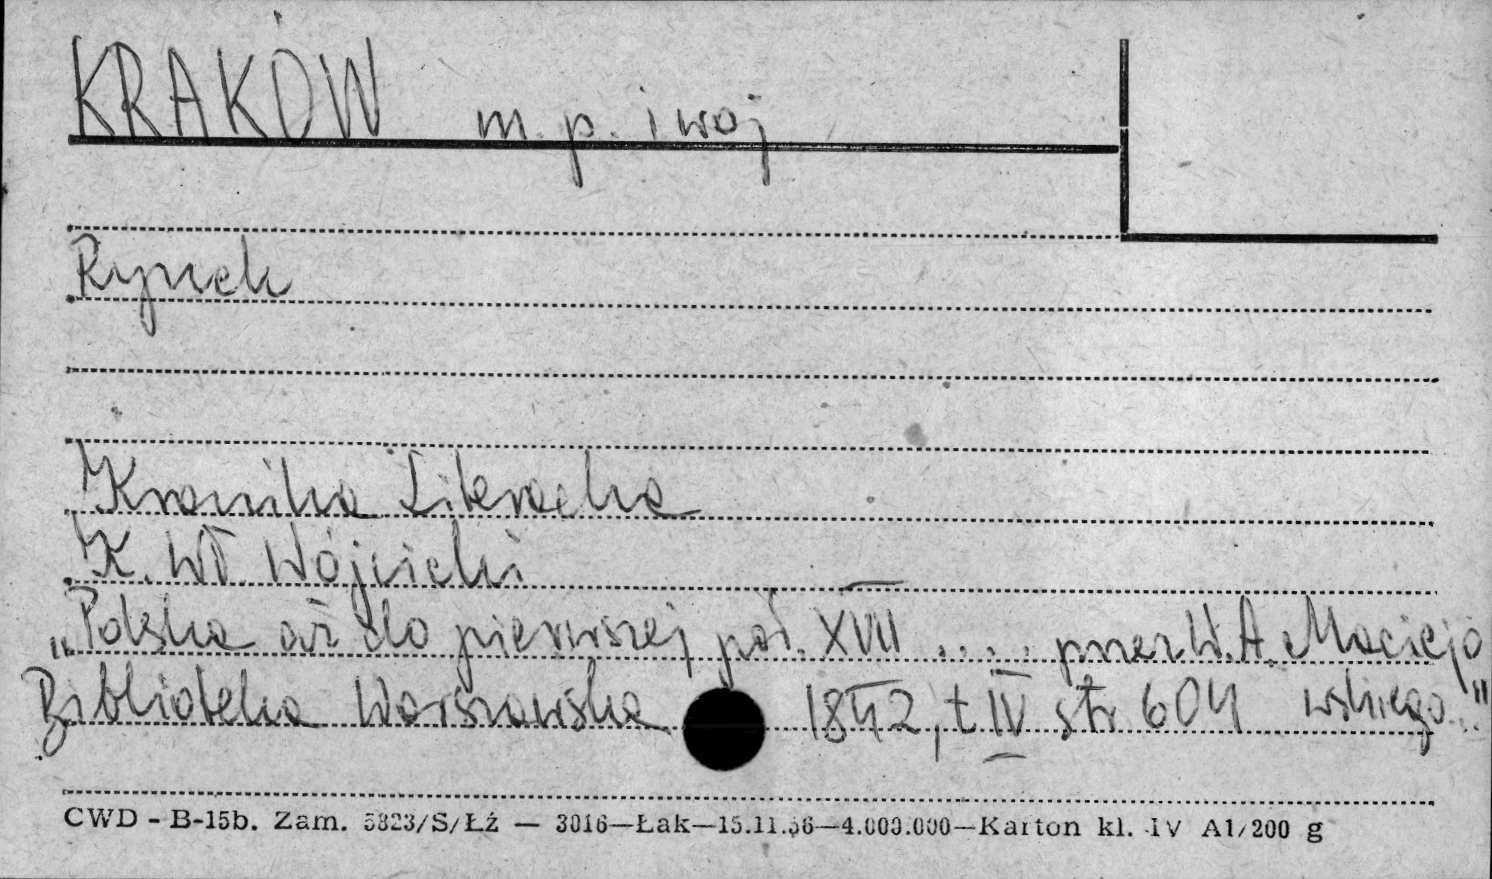 KRAKÓW m. p. i woj
Rynek
Kronika Literacka
K. Wł. Wójcicki
„Polska aż do pierwszej poł. XVII .... przez W. A. Maciejo
Biblioteka Warszawska 1842, t IV str 604 wskiego..."
CWD - B-15b. Zam. 5823/S/Łź — 3016—Łak—15.11.56—4.000.000—Karton kl. IV A1/200 g